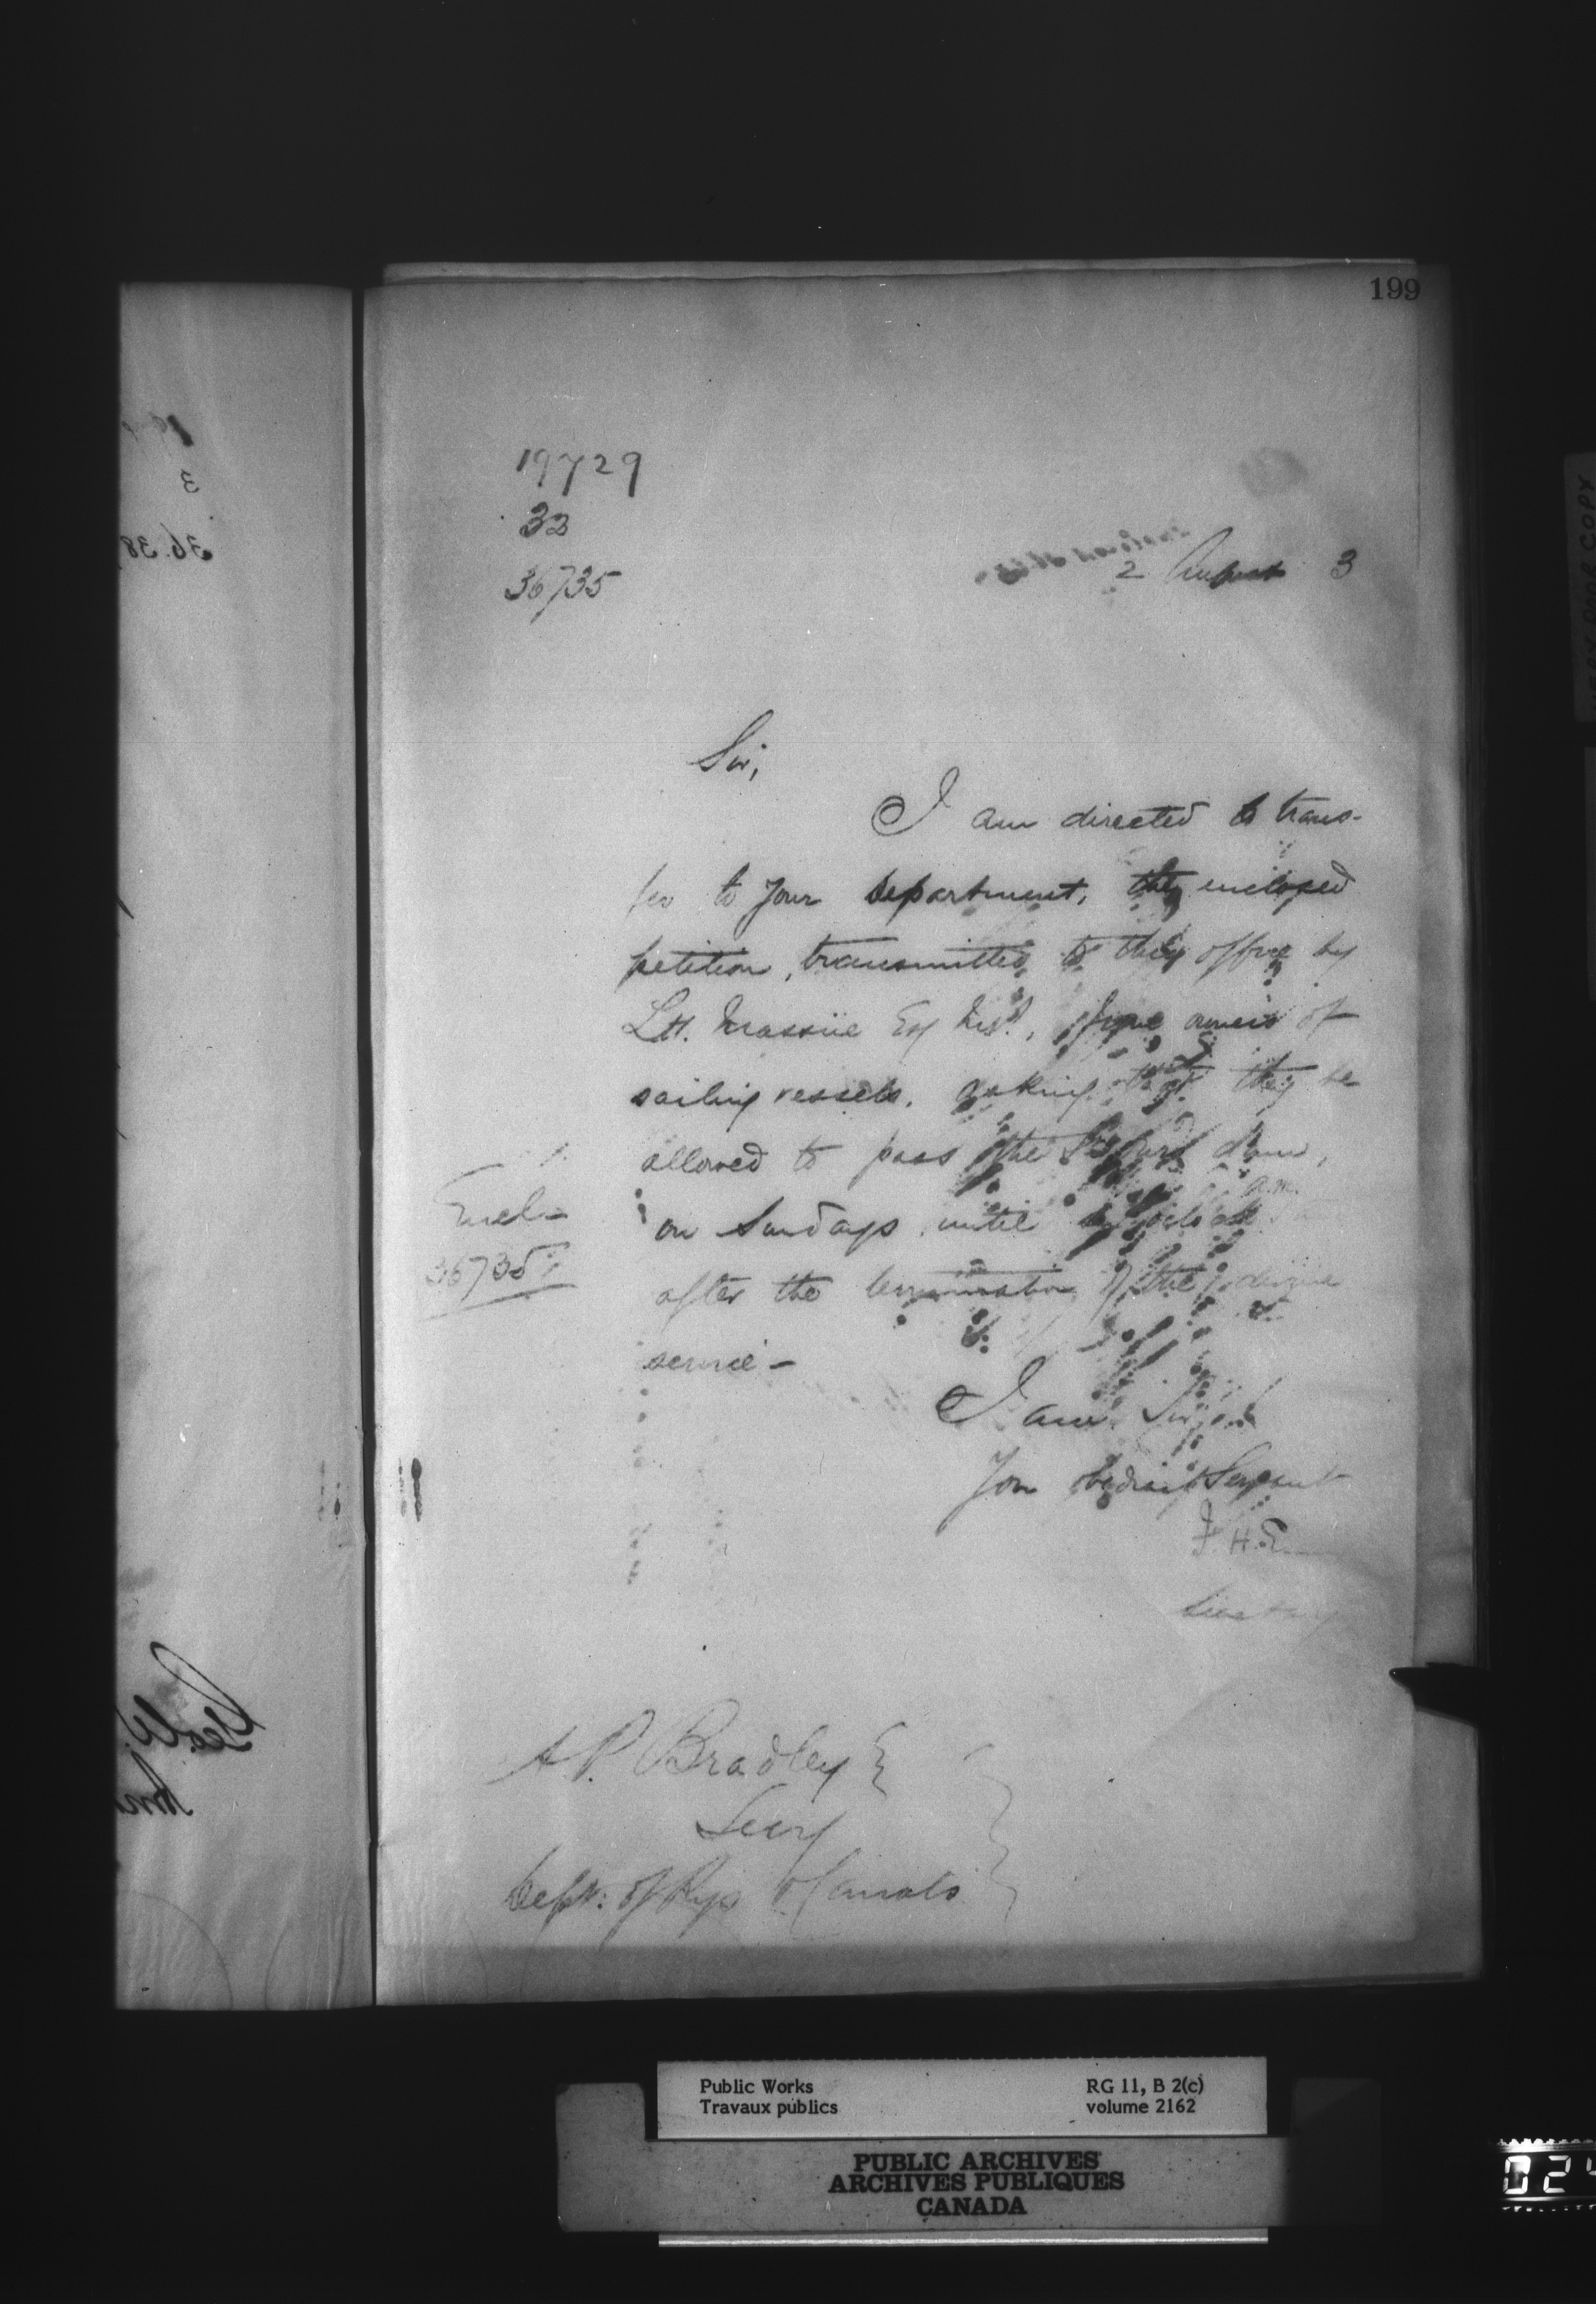 199
19729
32
36735
2 August 3
Sir,
I am directed to trans-
fer to your Department, the enclosed
petition, transmitted to this office by
L.H. Massue Esq M.P., from owners of
sailing vessels, asking that they be
allowed to pass the St Ours dam,
on Sundays until o'clock a.m.
after the termination of the divine
service -
Encl-
36735
I am Sir,
Your obedient Servant
F. H. E
Secretary
A P. Bradley
Secy
Dept: of Rys & Canals
VERY POOR COPY
Public Works
Travaux publics
RG 11, B 2(c)
volume 2162
PUBLIC ARCHIVES
ARCHIVES PUBLIQUES
CANADA
02